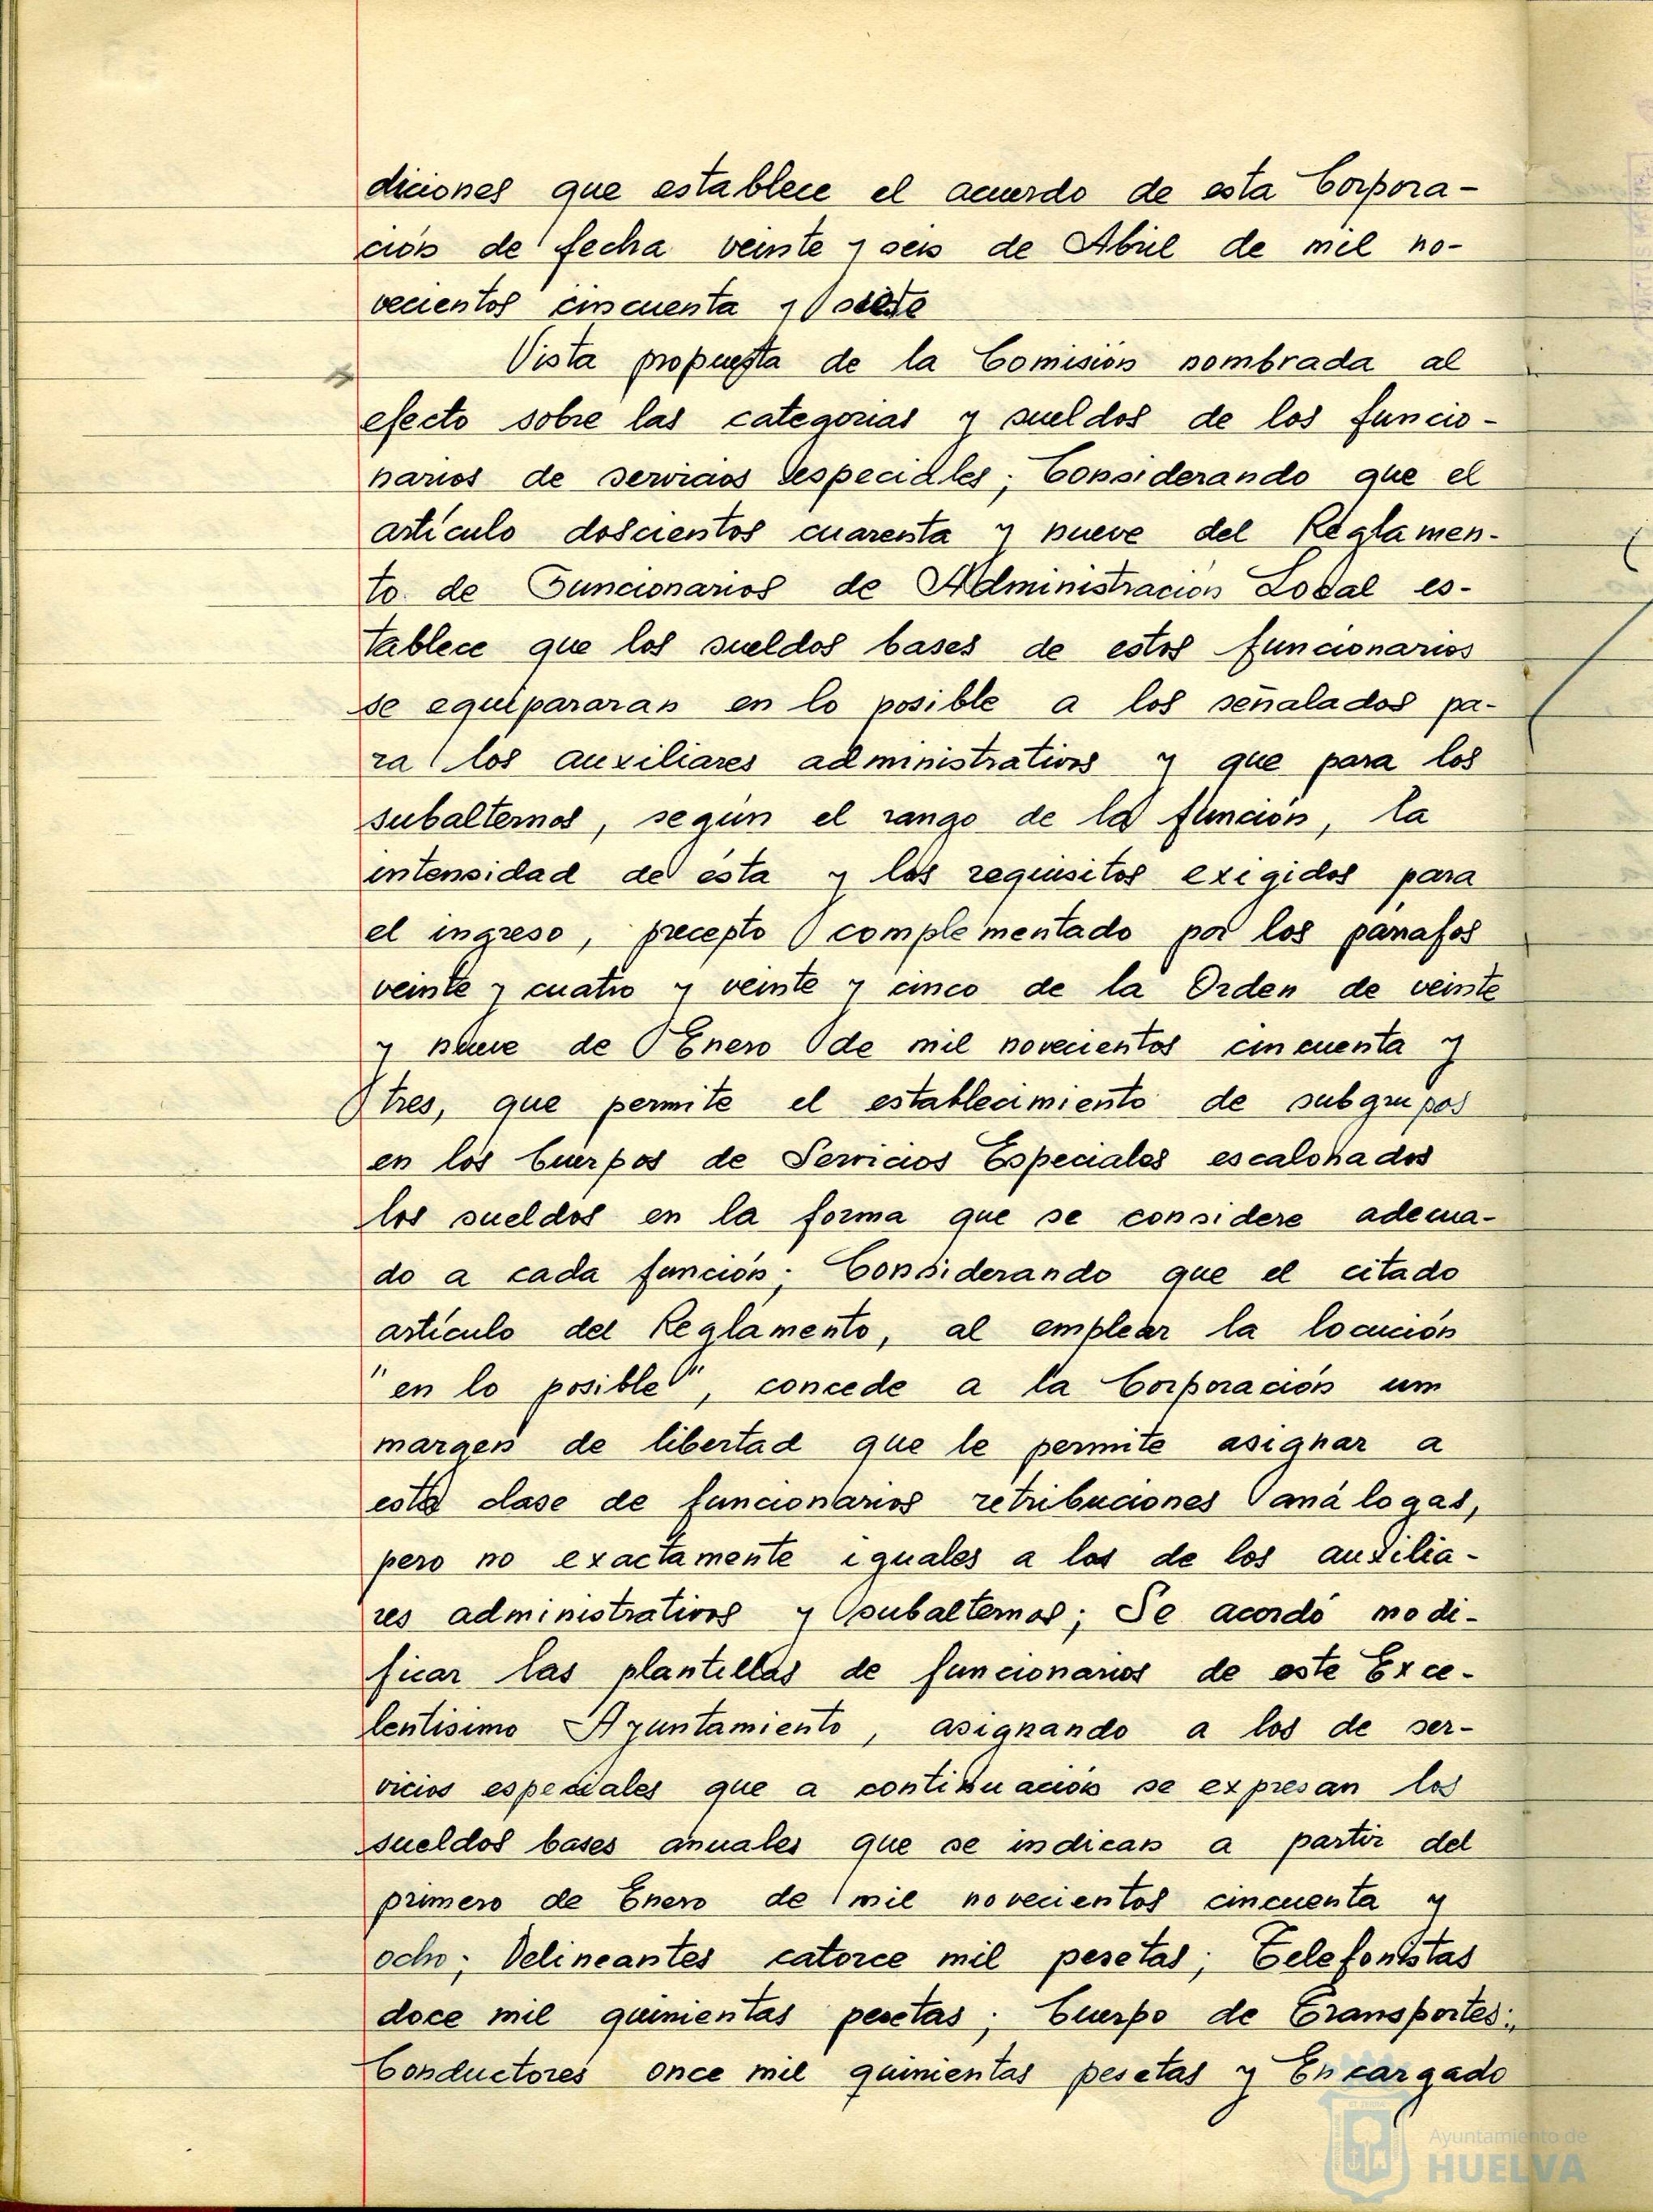 diciones que establece el acuerdo de esta Corpora-
ción de fecha veinte y seis de Abril de mil no-
vecientos cincuenta y siete
Vista propuesta de la Comisión nombrada al
efecto sobre las categorias y sueldos de los funcio-
narios de servicios especiales; Considerando que el
artículo doscientos cuarenta y nueve del Reglamen-
to de Funcionarios de Administración Local es-
tablece que los sueldos bases de estos funcionarios
se equipararan en lo posible a los señalados pa-
ra los auxiliares administrativos y que para los
subalternos, según el rango de la función, la
intensidad de ésta y los requisitos exigidos para
el ingreso, precepto complementado por los párrafos
veinte y cuatro y veinte y cinco de la Orden de veinte
y nueve de Enero de mil novecientos cincuenta y
tres, que permite el establecimiento de subgrupos
en los Cuerpos de Servicios Especiales escalonados
los sueldos en la forma que se considere adecua-
do a cada función; Considerando que el citado
artículo del Reglamento, al emplear la locución
"en lo posible", concede a la Corporación un
margen de libertad que le permite asignar a
esta clase de funcionarios retribuciones análogas,
pero no exactamente iguales a las de los auxilia-
res administrativos y subalternos; Se acordó modi-
ficar las plantillas de funcionarios de este Exce-
lentisimo Ayuntamiento, asignando a los de ser-
vicios especiales que a continuación se expresan los
sueldos bases anuales que se indican a partir del
primero de Enero de mil novecientos cincuenta y
ocho; Delineantes catorce mil pesetas; Telefonistas
doce mil quinientas pesetas; Cuerpo de Transportes:
Conductores once mil quinientas pesetas y Encargado
Ayuntamiento de
HUELVA